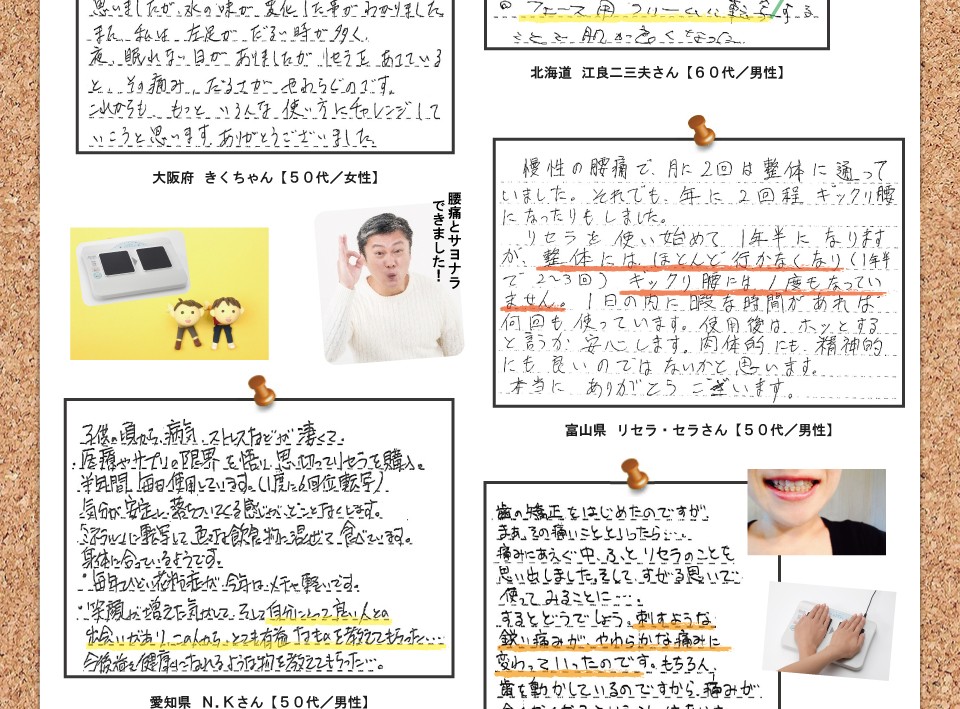 思いましたが、水の味が変化した事がわかりました
また私は左足がだるい時が多く、
夜、眠れない日がありましたがリセラをあてている
と、その痛み、だるさがやわらぐのです。
これからも、もっといろんな使い方にチャレンジして
いこうと思います。ありがとうございました。
大阪府 きくちゃん【50代/女性】
転写する
ことで肌が良くなった。
北海道 江良二三夫さん【60代/男性】
腰痛とサヨナラ
できました!
慢性の腰痛で、月に2回は整体に通って
いました。それでも、年に2回程ギックリ腰
になったりもしました。
リセラを使い始めて1年半になります
が、整体には、ほとんど行かなくなり(1年半
で2〜3回)ギックリ腰には、1度もなってい
ません。1日の内に暇な時間があれば
何回も使っています。使用後は、ホッとする
と言うか安心します。肉体的にも、精神的
にも良いのではないかと思います。
本当にありがとうございます。
富山県 リセラ・セラさん【50代/男性】
子供の頃から、病気、ストレスなどが凄くて、
・医療やサプリの限界を悟り、思い切ってリセラを購入。
半年間、毎日使用しています。(1度に6回位転写)
気分が安定し、落ちついてくる感じが、どことなくします。
ミネラルに転写して、色々な飲食物に混ぜて食べています。
身体に合っているようです。
・毎年ひどい花粉症が、今年は、メチャ軽いです。
・笑顔が増えた気がして、そして自分にとって良い人との
出会いがあり、この人から、とても有益なものを教えてもらった…
今後益々健康になれるような物を教えてもらった…。
愛知県 N.Kさん【50代/男性】
歯の矯正をはじめたのですが、
まあ、その痛いことといったら・・・、
痛みにあえぐ中、ふとリセラのことを
思い出しました。そして、すがる思いで
使ってみることに・・・。
するとどうでしょう。刺すような
鋭い痛みが、やわらかな痛みに
変わっていったのです。もちろん、
歯を動かしているのですから、痛みが